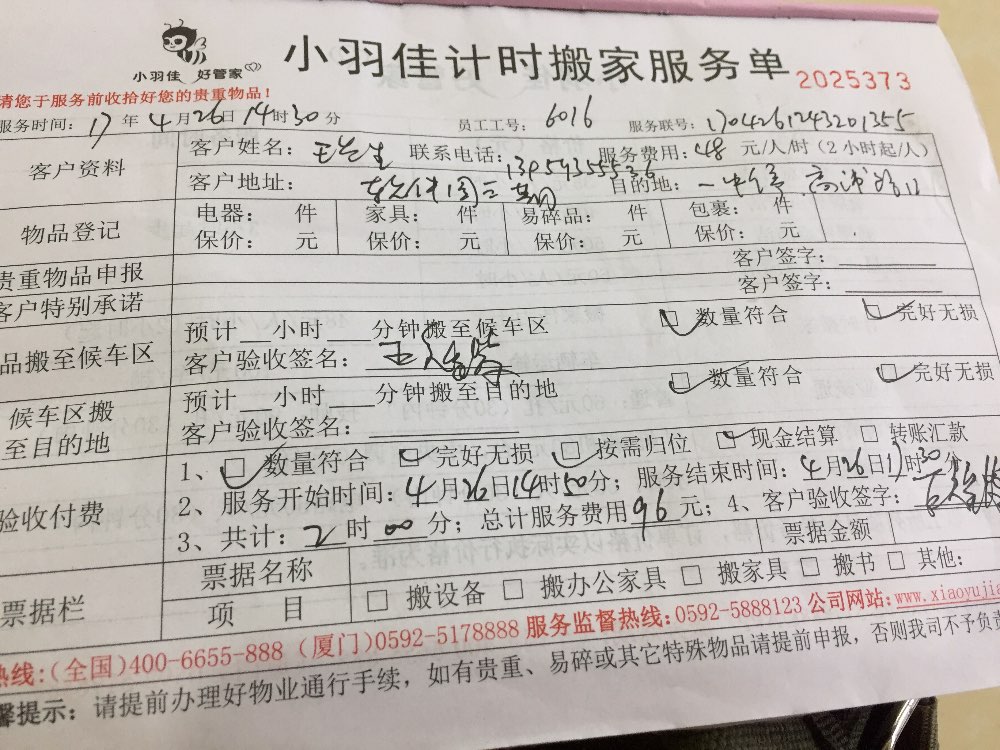 小羽佳 好管家
小羽佳计时搬家服务单 2025373
请您于服务前收拾好您的贵重物品！
服务时间：17年4月26日14时30分 员工工号：6016 服务联号：1704261243201355
客户资料 客户姓名：王先生 联系电话： 服务费用：48 元/人/时（2小时起/人）
客户地址： 二期 目的地：
物品登记 电器： 件 家具： 件 易碎品： 件 包裹： 件
保价： 元 保价： 元 保价： 元 保价： 元
贵重物品申报 客户签字：
客户特别承诺 客户签字：
品搬至候车区 预计__小时___分钟搬至候车区 数量符合 完好无损
客户验收签名：
候车区搬至目的地 预计__小时___分钟搬至目的地 数量符合 完好无损
客户验收签名：
验收付费 1、 数量符合 完好无损 按需归位 现金结算 转账汇款
2、服务开始时间：4月26日14时50分；服务结束时间：4月26日17时30分
3、共计：2时00分；总计服务费用96元；4、客户验收签字：
票据栏 票据名称 票据金额
项 目 搬设备 搬办公家具 搬家具 搬书 其他：
热线：(全国)400-6655-888 (厦门)0592-5178888 服务监督热线：0592-5888123 公司网站：www.xiaoyujia
馨提示：请提前办理好物业通行手续，如有贵重、易碎或其它特殊物品请提前申报，否则我司不予负责